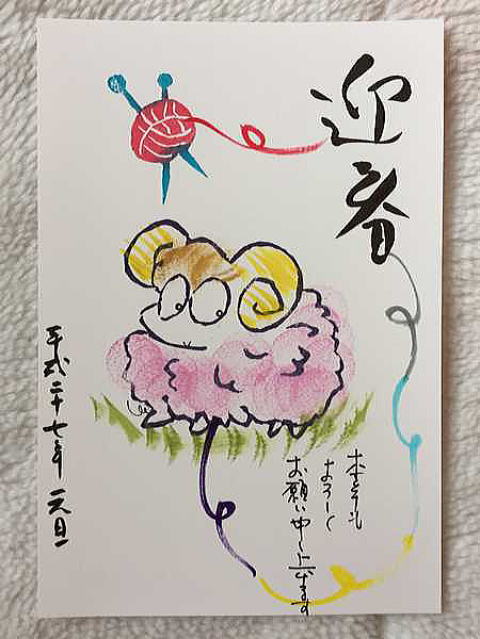 迎春
本年も
よろしく
お願い申し上げます
平成二十七年 元旦